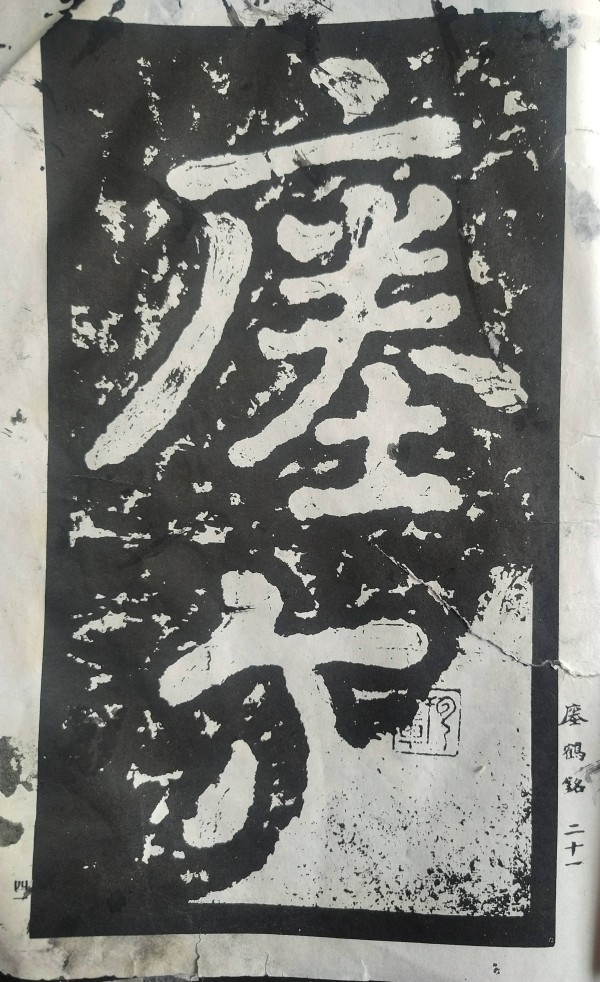 瘞
尒
瘞鶴銘 二十一
四